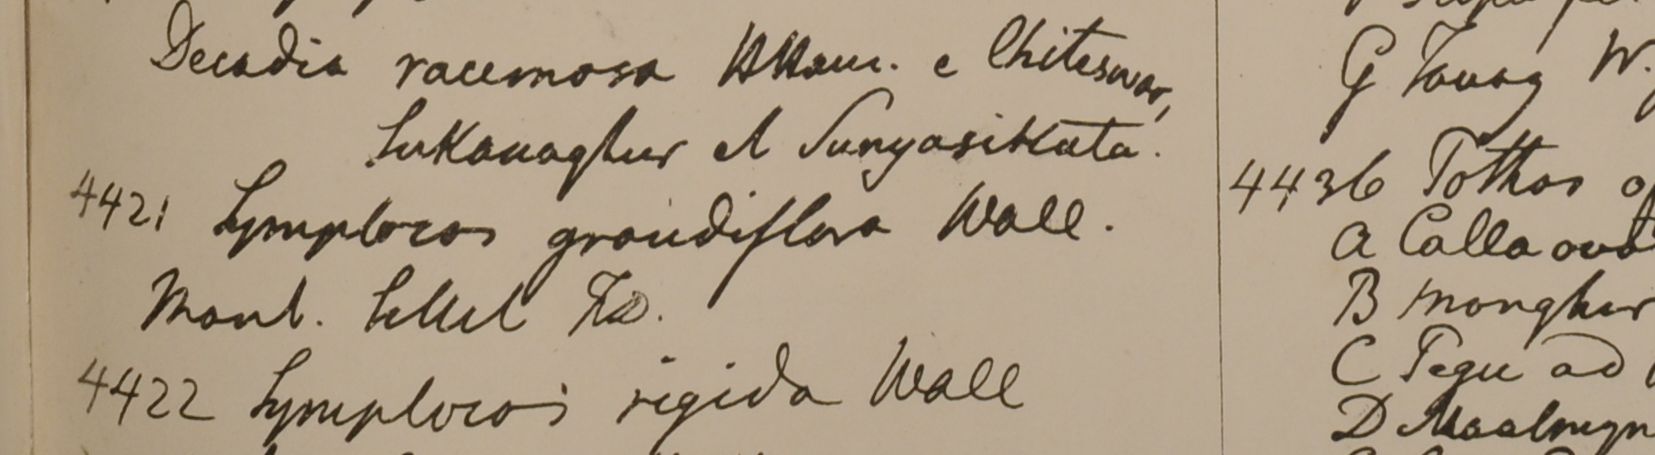 Decadia racemosa HHam. e Chiteswar,
Sukanaghur et Sunyasikata.
4421 Symplocos grandiflora Wall.
Mont. Sillet FD.
4422 Symplocos rigida Wall
G Tavoy W.
4436 Pothos
A Calla
B Monghir
C Pegu ad
D